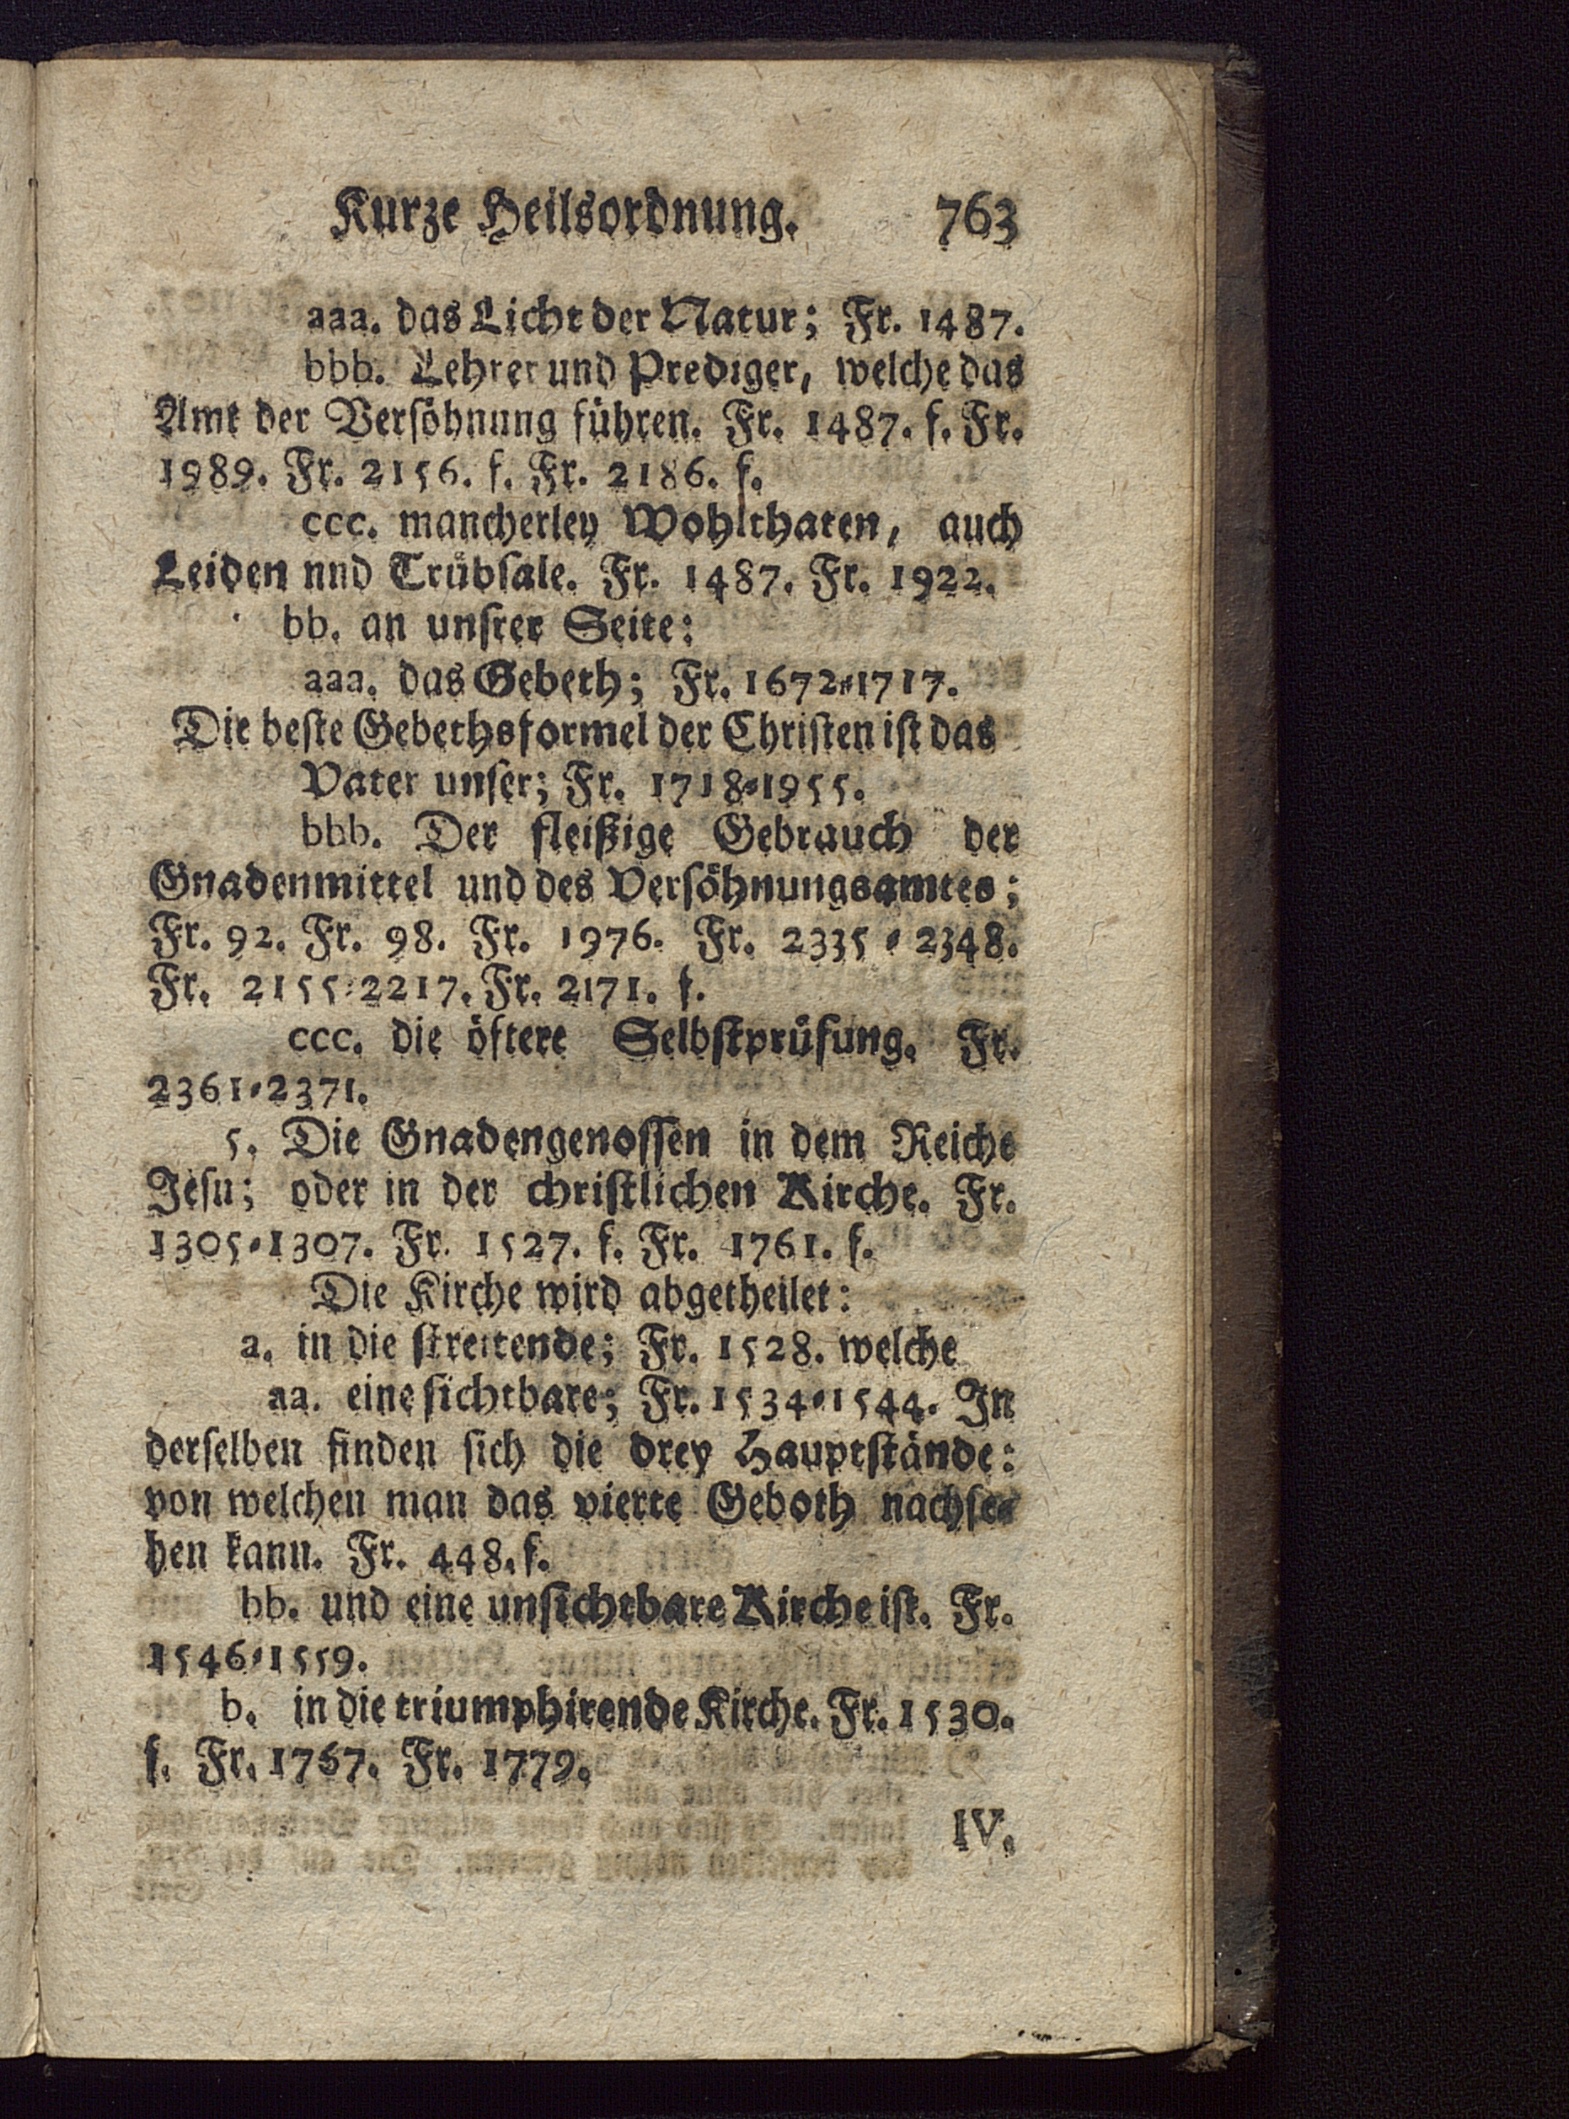 Kurze Heilsordnung. 763
aaa. das Licht der Natur; Fr. 1487.
bbb. Lehrer und Prediger, welche das
Amt der Versöhnung führen. Fr. 1487. f. Fr.
1989. Fr. 2156. f. Fr. 2186. f.
ccc. mancherley Wohlthaten, auch
Leiden nnd Trübsale. Fr. 1487. Fr. 1922.
bb. an unsrer Seite:
aaa. das Gebeth; Fr. 1672⸗1717.
Die beste Gebethsformel der Christen ist das
Vater unser; Fr. 1718⸗1955.
bbb. Der fleißige Gebrauch der
Gnadenmittel und des Versöhnungsamtes;
Fr. 92. Fr. 98. Fr. 1976. Fr. 2335⸗2348.
Fr. 2155⸗2217. Fr. 2171. f.
ccc. die öftere Selbstprüfung. Fr.
2361⸗2371.
5. Die Gnadengenossen in dem Reiche
Jesu; oder in der christlichen Kirche. Fr.
1305⸗1307. Fr. 1527. f. Fr. 1761. f.
Die Kirche wird abgetheilet:
a. in die streitende; Fr. 1528. welche
aa. eine sichtbare; Fr. 1534⸗1544. In
derselben finden sich die drey Hauptstände:
von welchen man das vierte Geboth nachse⸗
hen kann. Fr. 448. f.
bb. und eine unsichtbare Kirche ist. Fr.
1546⸗1559.
b. in die triumphirende Kirche. Fr. 1530.
f. Fr. 1767. Fr. 1779.
IV.